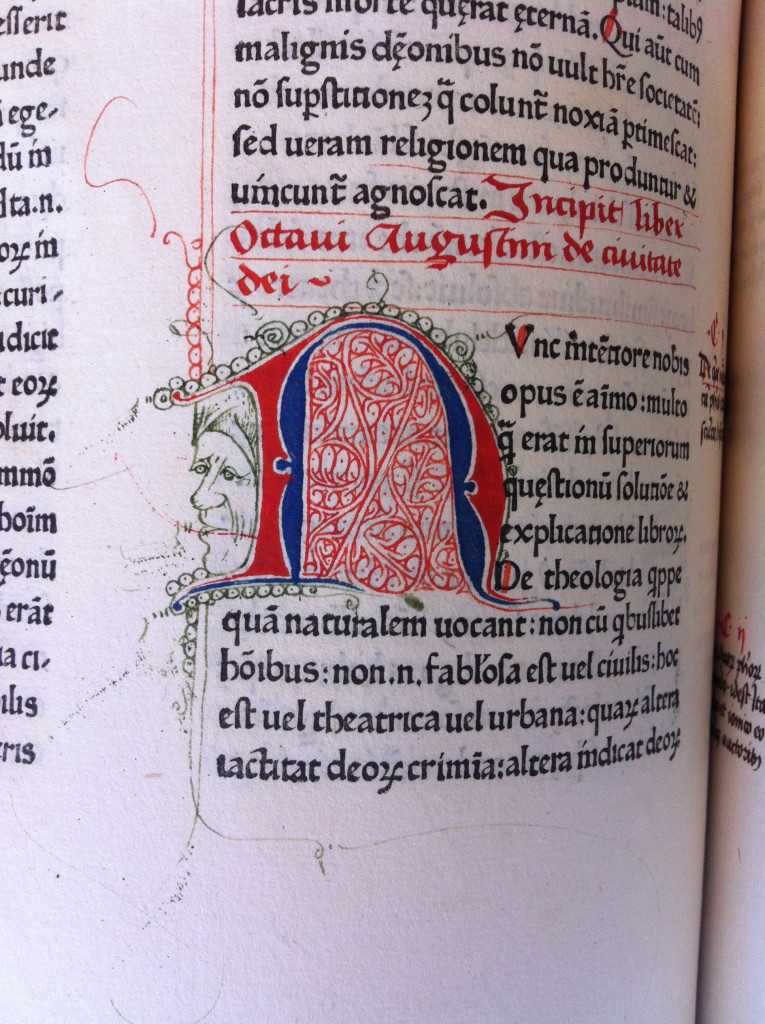 esserit
unde
ege-
dū in
lta.n.
oꝝ in
curi-
udicit
t eoꝝ
oluit.
mmō
boīm
ęonū
erāt
ta ci-
ilis
eris
lacris morte quęrat ęternā. Qui aūt cum
malignis dęonibus nō uult hr̄e societatē:
nō suꝑstitionez q̄ colunt̄ noxiā ꝑtimescat:
sed ueram religionem qua produntur &
uincunt̄ agnoscat. Incipit liber
Octaui Augustini de ciuitate
dei ~
NVnc īntētiore nobis
opus ē aīmo: multo
q̄ erat in superiorum
quęstionū solutiōe &
explicatione libroꝝ.
De theologia qppe
quā naturalem uocant: non cū qbuslibet
hōibus: non.n. fabl'osa est uel ciuilis: hoc
est uel theatrica uel urbana: quaꝝ altera
iactitat deoꝝ crimīa: altera indicat deoꝝ